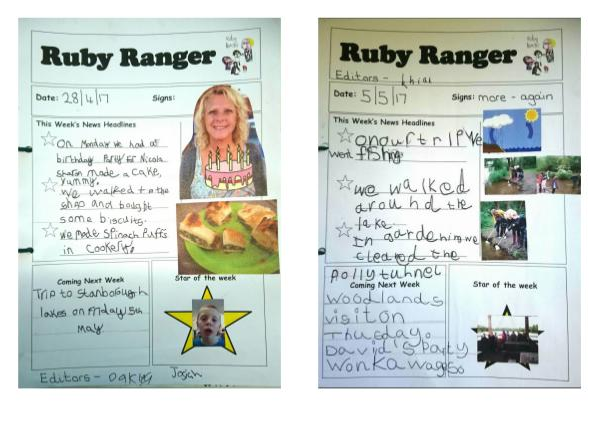 ruby
Ruby Ranger
Date: 28/4/17 Signs:
This Week's News Headlines
On Monday we had at
birthday Party for Nicola
Sharon made a cake,
Yummy.
We walked to the
shop and bought
some biscuits.
We made Spinach Puffs
in Cookery.
Coming Next Week
Trip to Stanborough
lakes on Friday 5th
May
Star of the week
Editors - Josh
ruby
Ruby Ranger
Editors -
Date: 5/5/17 Signs: more - again
This Week's News Headlines
on our trip We
went fishing
we walked
around the
lake
In gardening we
cleared the
Polly tunnel
Coming Next Week
Woodlands
visit on
Thusday.
David's Party
Wonka
Star of the week